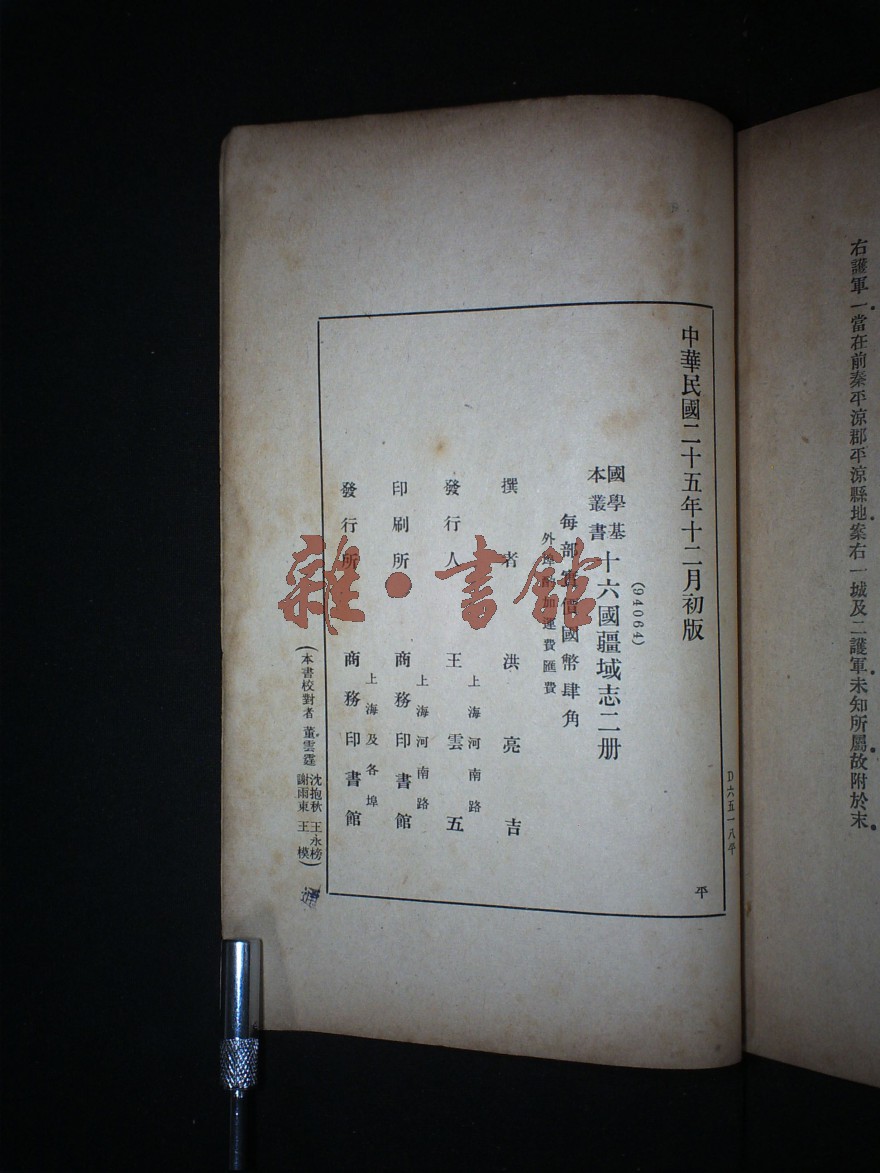 右護軍一當在前秦平涼郡平涼縣地案右一城及二護軍未知所屬故附於末
D六五一八平
中華民國二十五年十二月初版
平
(94064)
國學基本叢書 十六國疆域志二册
每部實價國幣肆角
外埠酌加運費匯費
撰者 洪亮吉
上海河南路
發行人 王雲五
上海河南路
印刷所 商務印書館
上海及各埠
發行所 商務印書館
(本書校對者 董雲霆 沈抱秋 王永榜 謝雨東 王模)
雜·書館